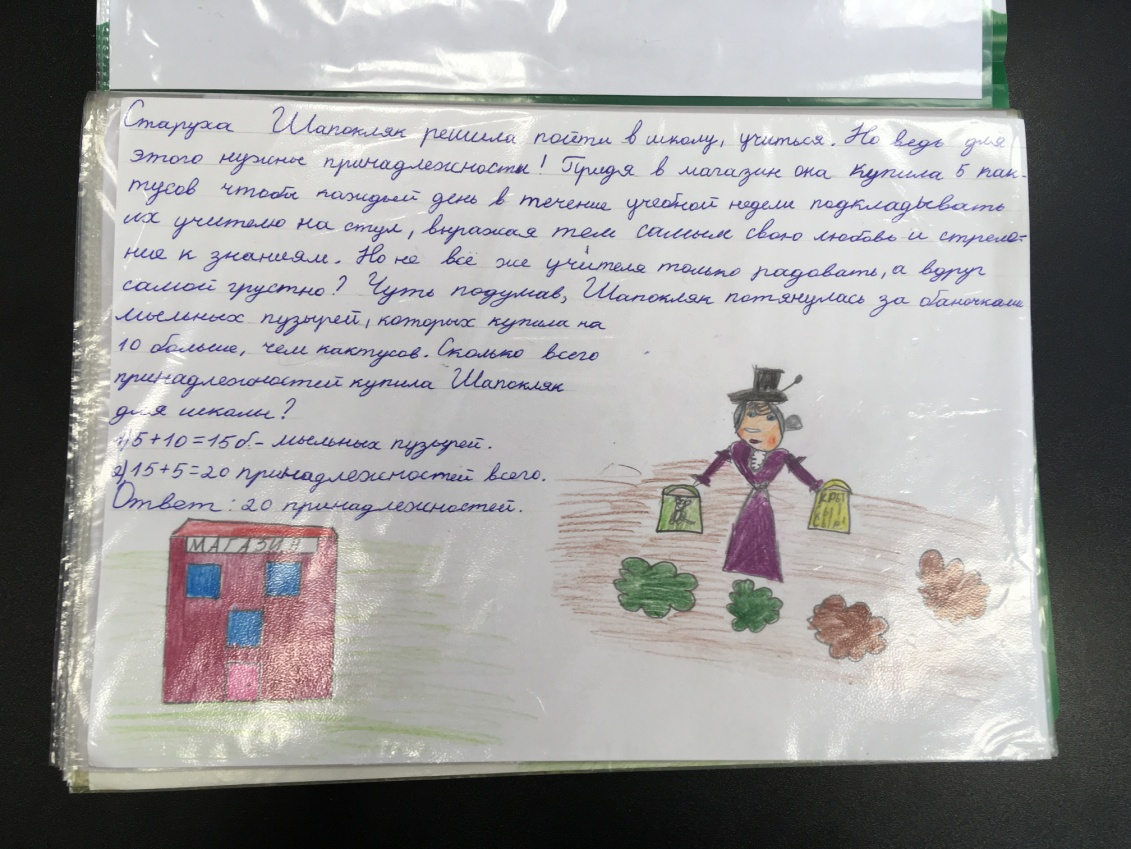 Старуха Шапокляк решила пойти в школу, учиться. Но ведь для
этого нужны принадлежности! Придя в магазин она купила 5 как-
тусов чтобы каждый день в течение учебной недели подкладывать
их учителю на стул, выражая тем самым свою любовь и стремле-
ние к знаниям. Но не всё же учителя только радовать, а вдруг
самой грустно? Чуть подумав, Шапокляк потянулась за баночками
мыльных пузырей, которых купила на
10 больше, чем кактусов. Сколько всего
принадлежностей купила Шапокляк
для школы?
1) 5+10=15б.- мыльных пузырей.
2) 15+5=20 принадлежностей всего.
Ответ: 20 принадлежностей.
МАГАЗИН